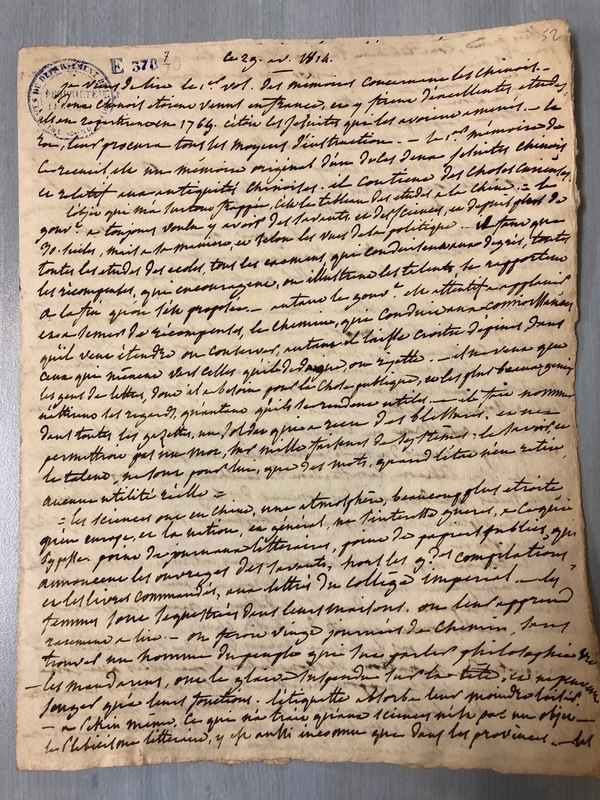 52
E 378 7
ce 29. av. 1814.
je viens de lire le 1er vol. des mémoires concernant les chinois. -
jeunes chinois étaient venus en france, et y firent d'excellentes études,
ils en repartirent en 1764. c'étoit les jésuites qui les avoient amenés. - le
Roi, leur procura tous les moyens d'instruction. - le 1er mémoire de
ce recueil, est un mémoire original d'un de ces deux jésuites chinois
et relatif aux antiquités chinoises. il contient des choses curieuses.
L'objet qui m'a surtout frappée, c'est le tableau des études à la chine. = le
gouvt a toujours voulu y avoir des savants et des sciences, et depuis plus de
30. siècles, mais à sa manière, et selon les vues de sa politique. - il faut que
toutes les études des écoles, tous les examens, qui conduisent aux degrés, toutes
les récompenses, qui encouragent, ou illustrent les talents, se rapportent
à la fin qu'on s'est proposée. - autant le gouvt est attentif à applanir
et à semer de récompenses, le chemin, qui conduit aux connoissances
qu'il veut étendre ou conserver, autant il laisse croître d'épines, dans
ceux qui mènent vers celles qu'il dédaigne, ou rejette. - il ne veut que
les gens de lettres, dont il a besoin pour la chose publique, et les plus beaux génies
n'attirent ses regards, qu'autant qu'ils se rendent utiles. - il fait nommer
dans toutes les gazettes, un soldat qui a reçu des blessures, et ne
permettroit pas un mot, sur mille faiseurs de systèmes. le savoir, et
le talent, ne sont pour lui, que des mots, quand l'état n'en retire,
aucune utilité réelle =
= les sciences ont en chine, une atmosphère, beaucoup plus étroite
qu'en europe, et la nation, en général, ne s'intéresse guères, à ce qui
s'y passe. point de journaux littéraires, point de papiers publics, qui
annoncent les ouvrages des savants, hors les gdes compilations
et les livres commandés, aux lettrés du collège impérial. - les
femmes sont séquestrées dans leurs maisons. on leur apprend
rarement à lire. - on feroit vingt journées de chemin, sans
trouver un homme du peuple qui sut parler philosophie
- les mandarins, ont le glaive suspendu sur la tête, et ne peuvent
songer qu'à leurs fonctions. l'étiquette absorbe leur moindre loisir.
- à Pékin même, ce qui n'a trait qu'aux sciences n'est pas un objet -
le littéraire, y est aussi inconnu que dans les provinces. -